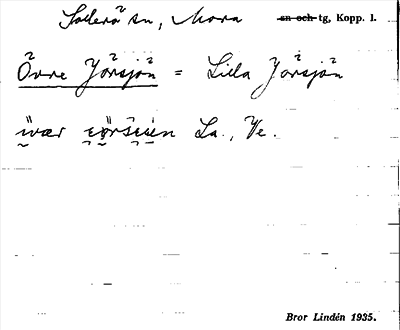 Sollerö sn, Mora sn och tg, Kopp. l.
Övre Jörsjön = Lilla Jörsjön
La., Ve.
Bror Lindén 1935.